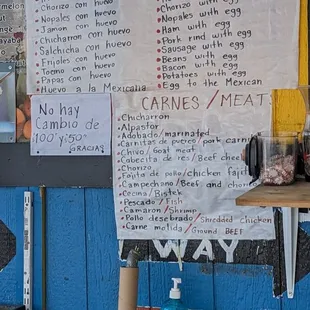 Chorizo con huevo
Nopales con huevo
Jamon con huevo
Chicharron con huevo
Salchicha con huevo
Frijoles con huevo
Tocino con huevo
Papas con huevo
Huevo a la Mexicana
Chorizo with egg
Nopales with egg
Ham with egg
Pork rind with egg
Sausage with egg
Beans with egg
Bacon with egg
Potatoes with egg
Egg to the Mexican
No hay
Cambio de
100 y 50
GRACIAS
CARNES / MEAT
Chicharron
Alpastor
Adobada / marinated
Carnitas de puerco / pork carnitas
Chivo / Goat meat
Cabecita de res / Beef
Chorizo
Fajita de pollo / chicken fajita
Campechano / Beef and
Cecina / Bistek
Pescado / Fish
Camaron / Shrimp
Pollo desebrado / Shredded chicken
Carne molida / Ground BEEF
WAY